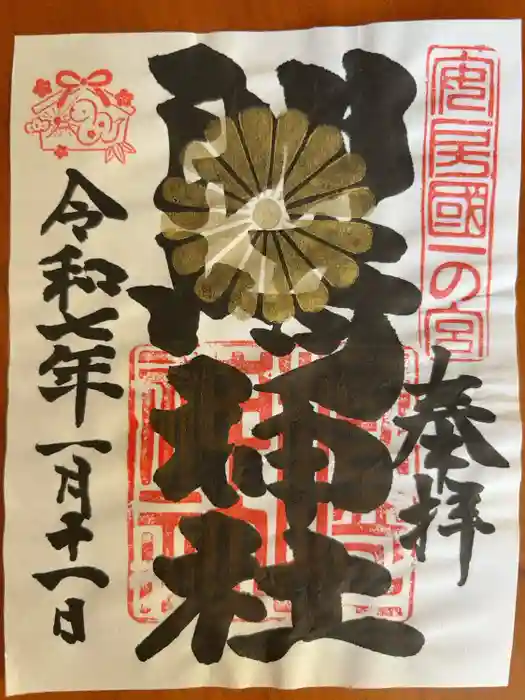 安房國一の宮
奉拝
洲崎神社
令和七年一月十一日